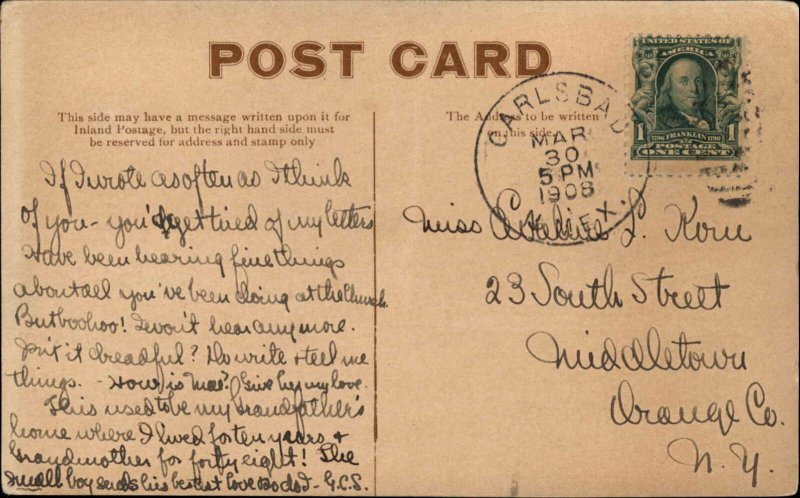 POST CARD
This side may have a message written upon it for
Inland Postage, but the right hand side must
be reserved for address and stamp only
The Address to be written
on this side
UNITED STATES OF
AMERICA
1 1790 FRANKLIN 1790 1
POSTAGE
ONE CENT
CARLSBAD
MAR
30
5 PM
1908
N. MEX.
If I wrote as often as I think
of you - you'd get tired of my letters
Have been hearing fine things
about all you've been doing at the Church.
But boohoo! I won't hear any more.
Isn't it dreadful? Do write & tell me
things. - How is Mae? Give her my love.
This used to be my Grandfather's
home where I lived for ten years &
Grandmother for forty eight! The
small boy sends his bestest love - G.C.S.
Miss L. Korn
23 South Street
Middletown
Orange Co.
N. Y.